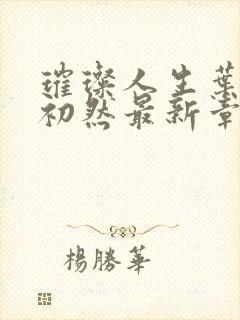 璀璨人生葉
初然最新章
楊勝華